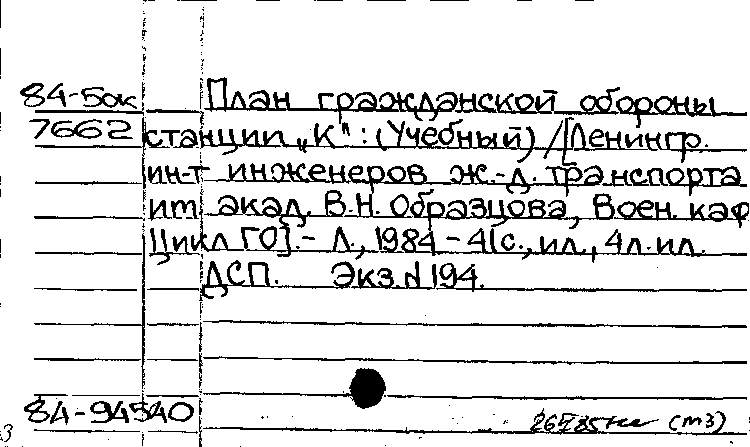 84-5ок План гражданской обороны
7662 станции „К": (Учебный) /[Ленингр.
ин-т инженеров ж.-д. транспорта
им. акад. В.Н. Образцова, Воен. каф
Цикл ГО]. - Л., 1984 - 41с., ил., 4л. ил.
ДСП. Экз. N 194.
84-94540
(тз)